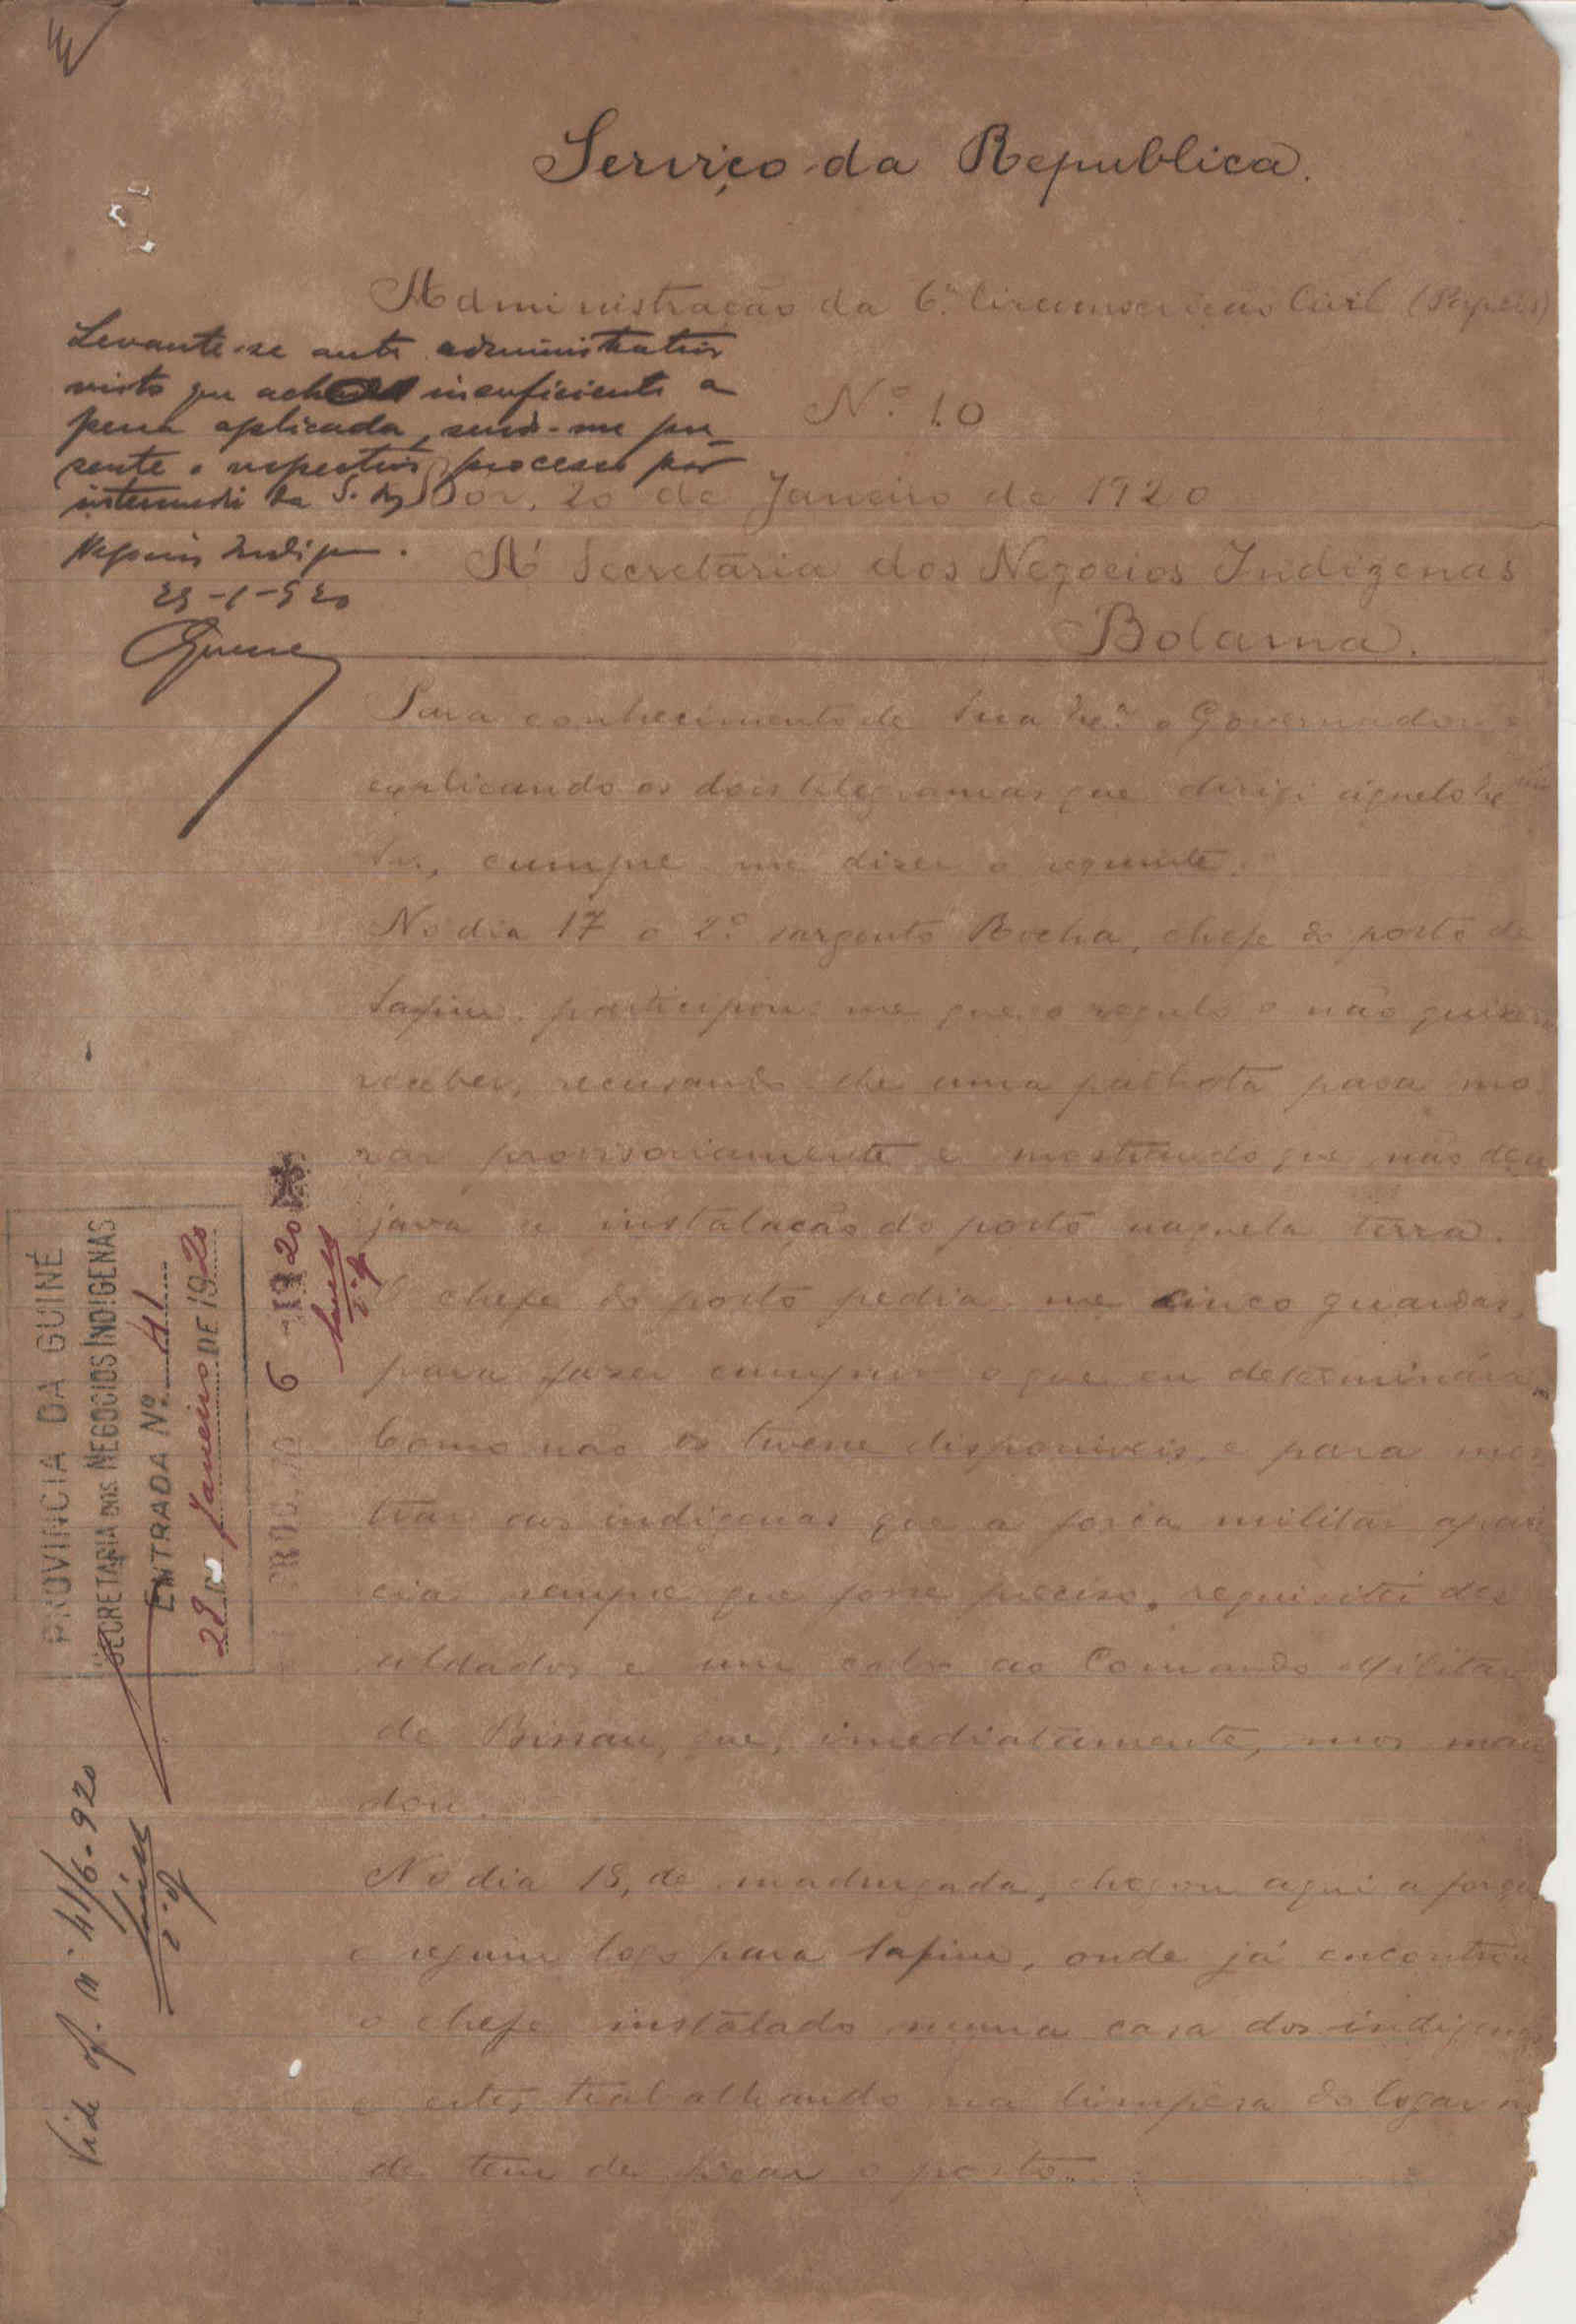 Serviço da Republica.
Administração da 6.ª Circumscrição Civil (Papeis)
Levante-se auto administrativo
visto que acho insuficiente a
pena aplicada, sendo-me pre-
sente o respectivo processo por
intermedio da S. dos
Negocios Indigenas.
23-1-920
N.º 10
Bór, 20 de Janeiro de 1920
Á Secretaria dos Negocios Indigenas
Bolama.
Para conhecimento de Sua Ex.ª o Governador e
explicando os dois telegramas que dirigi áquele Ex.mo
Snr, cumpre-me dizer o seguinte:
No dia 17 o 2.º sargento Rocha, chefe do posto de
Safim, participou-me que o regulo o não quizera
receber, recusando-lhe uma palhota para mo-
rar provisoriamente e mostrando que não dese-
java a instalação do posto naquela terra.
O chefe do posto pedia-me cinco guardas,
para fazer cumprir o que eu determinára.
Como não os tivesse disponiveis, e para mos-
trar aos indigenas que a força militar apare-
cia sempre que fosse preciso, requisitei dez
soldados e um cabo ao Comando Militar
de Bissau, que, imediatamente, mos man-
dou.
No dia 18, de madrugada, chegou aqui a força
e seguiu logo para Safim, onde já encontrou
o chefe instalado numa casa dos indigenas
e estes trabalhando na limpesa do logar on-
de tem de ficar o posto.
PROVINCIA DA GUINÉ
SECRETARIA DOS NEGOCIOS INDIGENAS
ENTRADA Nº 41
28 Janeiro DE 1920
PROC. Nº 6 - 1920
Vide of. nº 41/6-920